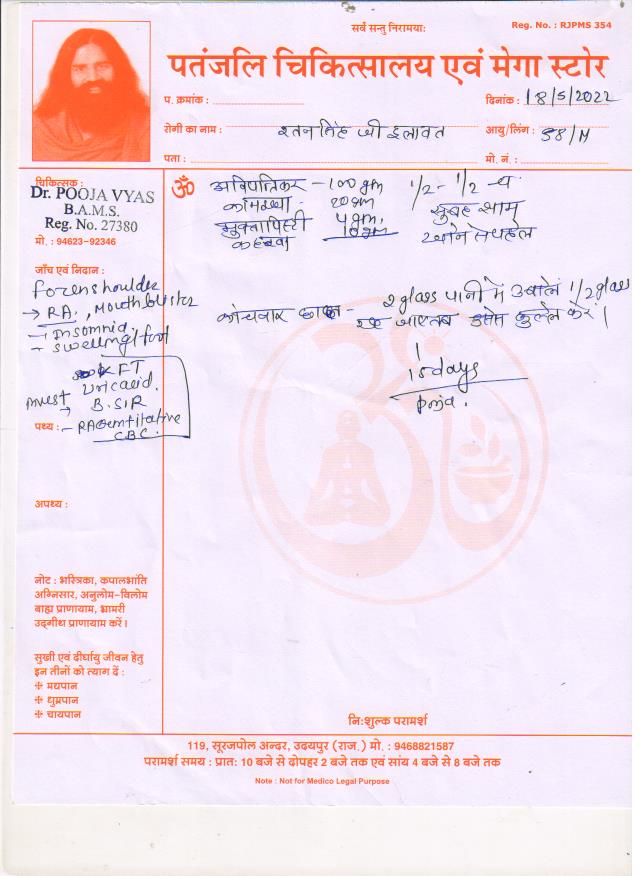 सर्वे सन्तु निरामयाः
Reg. No. : RJPMS 354
पतंजलि चिकित्सालय एवं मेगा स्टोर
प. क्रमांक :
दिनांक : 18/5/2022
रोगी का नाम : रतन सिंह जी
आयु/लिंग : 58/M
पता :
मो. नं. :
चिकित्सक :
Dr. POOJA VYAS
B.A.M.S.
Reg. No. 27380
मो. : 94623-92346
ॐ
अविपत्तिकर - 100 gm
20 gm
मुक्तापिष्टी 4 gm,
10 gm
1/2 - 1/2 - च
सुबह शाम
जाँच एवं निदान :
→ RA,
- Insomnia
- swelling foot
2 glass पानी में उबाले 1/2 glass
करें।
15 days
FT
Uric acid.
→ B. SIR
- RA
CBC.
पथ्य :
अपथ्य :
नोट : भस्त्रिका, कपालभांति
अग्निसार, अनुलोम-विलोम
बाह्य प्राणायाम, भ्रामरी
उद्गीथ प्राणायाम करें।
सुखी एवं दीर्घायु जीवन हेतु
इन तीनों को त्याग दें :
मद्यपान
धुम्रपान
चायपान
नि:शुल्क परामर्श
119, सूरजपोल अन्दर, उदयपुर (राज.) मो. : 9468821587
परामर्श समय : प्रात: 10 बजे से दोपहर 2 बजे तक एवं सांय 4 बजे से 8 बजे तक
Note : Not for Medico Legal Purpose